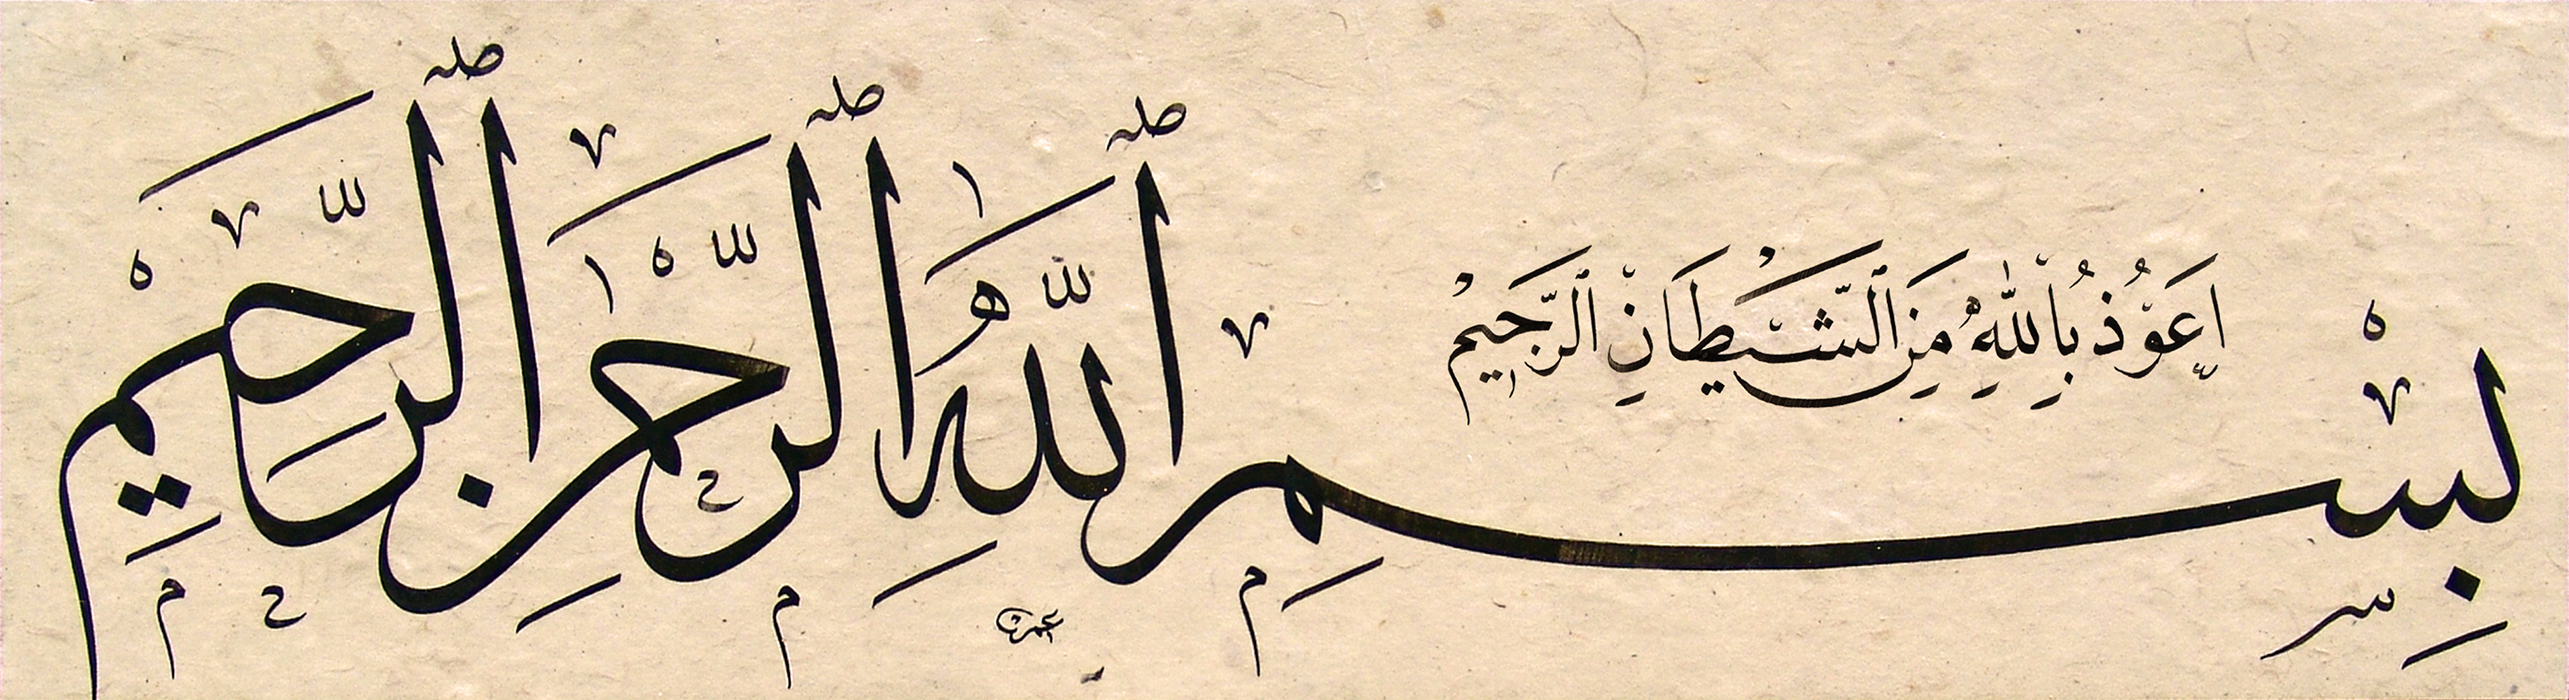 اَعُوذُ بِاللّٰهِ مِنَ الشَّيْطَانِ الرَّجِيمْ
بِسْمِ ٱللَّهِ ٱلرَّحْمٰنِ ٱلرَّحِيمِ